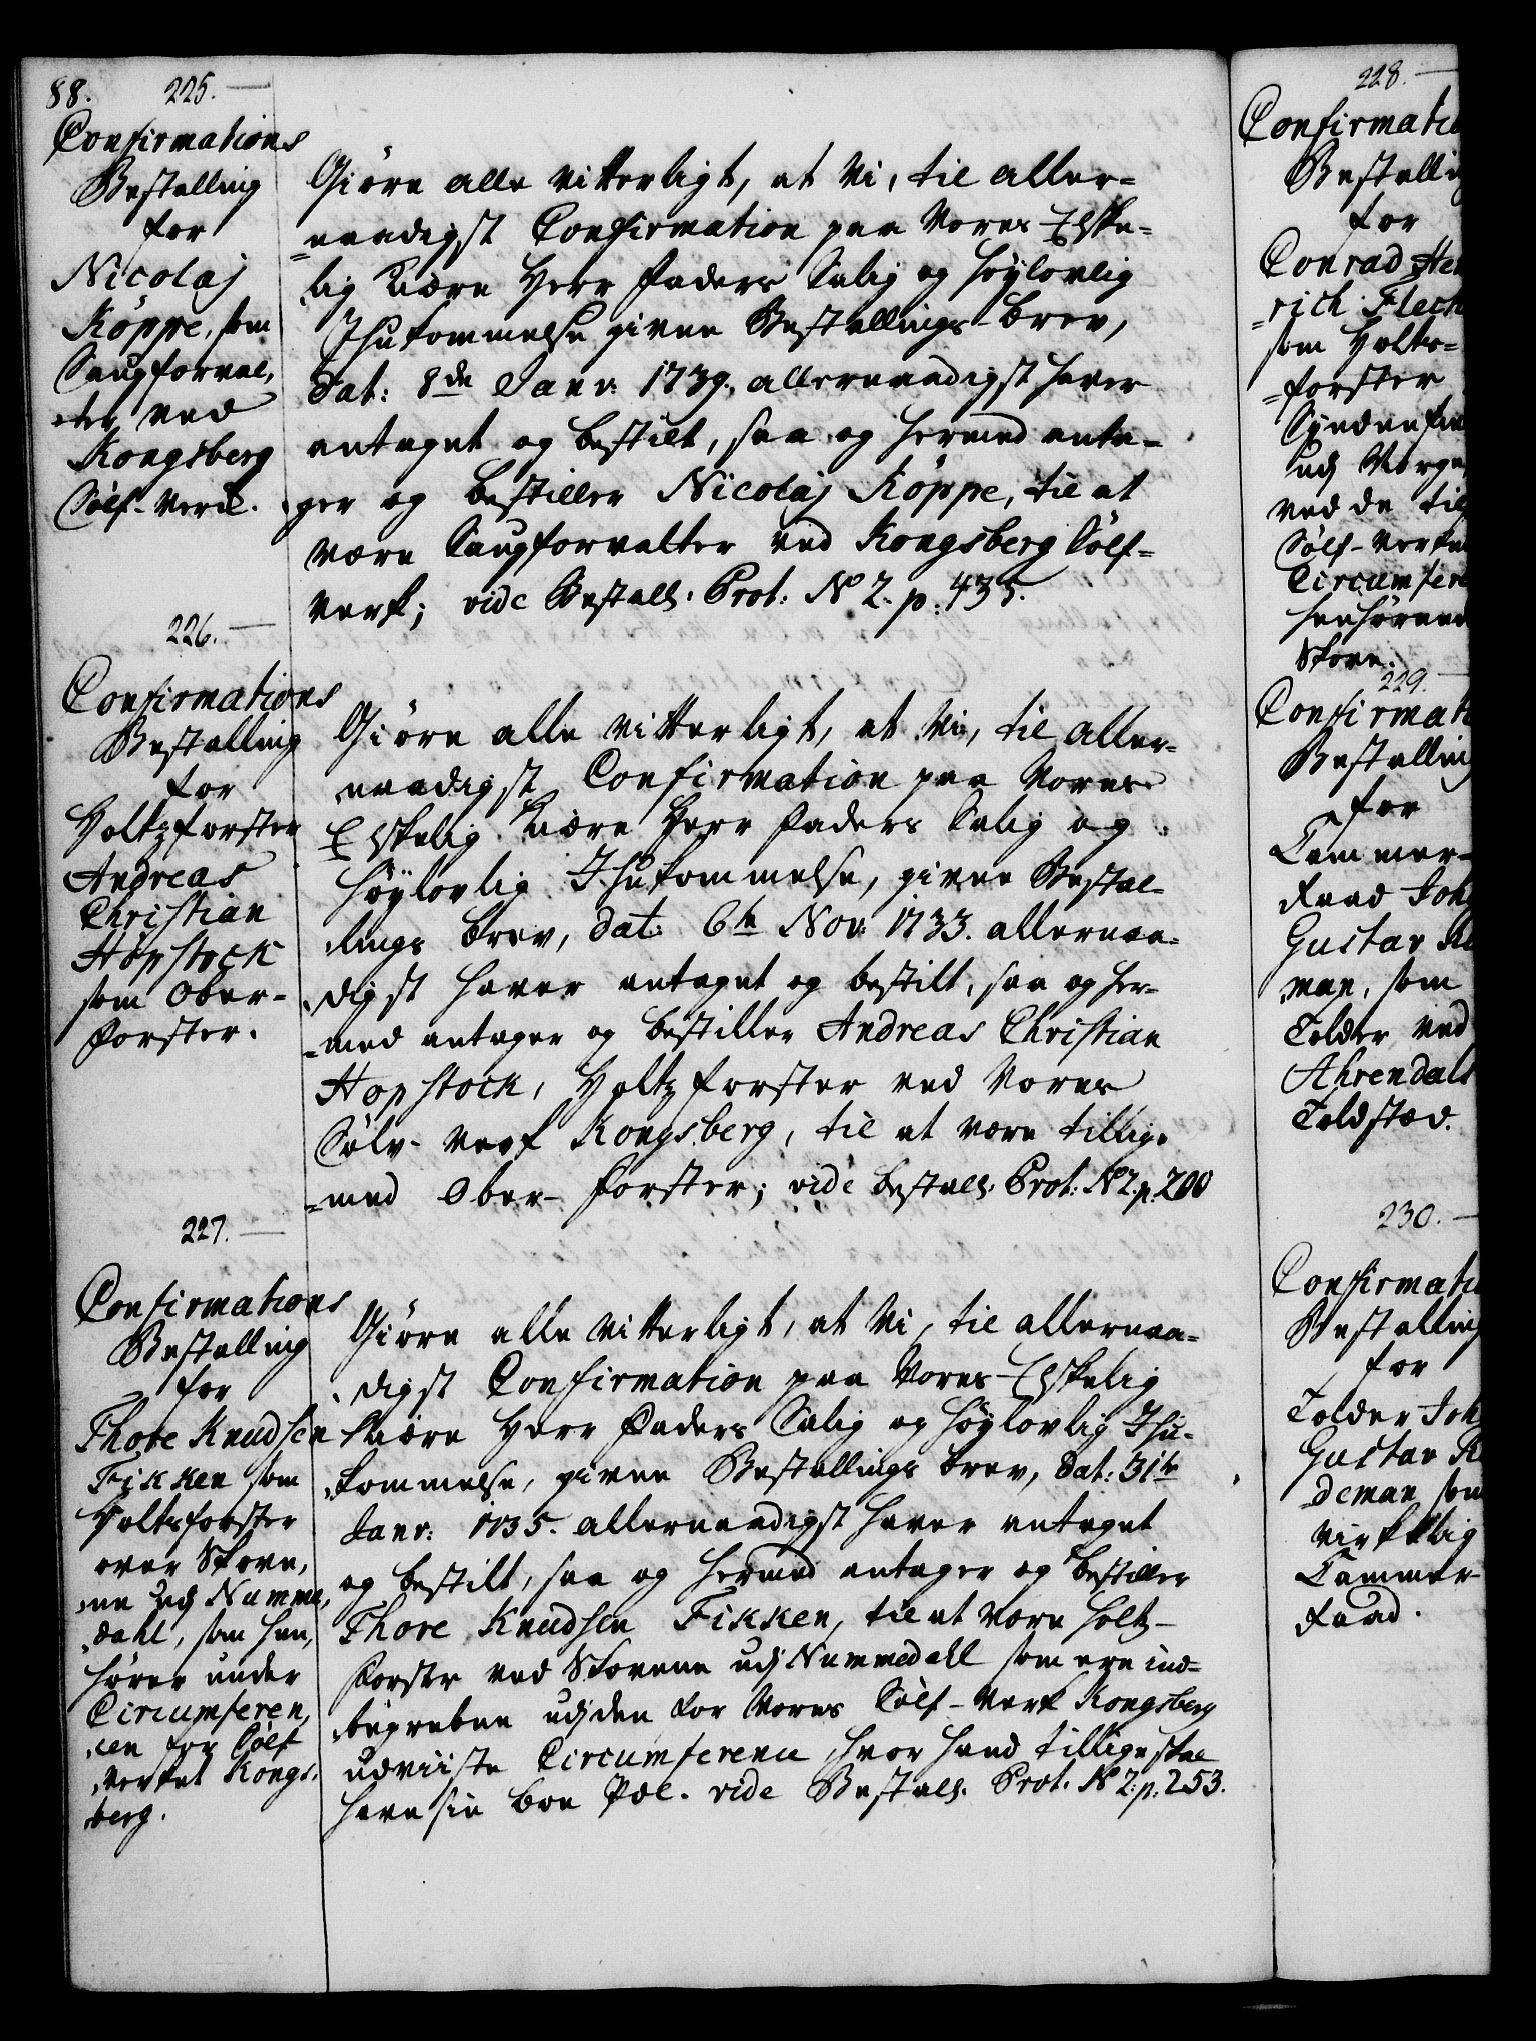 88.
225.
Confirmations
Bestalling
for
Nicolaj
Köppe, som
Saugforval,
ter ved
Kongsberg
Sölf-Verck.
Giöre alle Vitterligt, at Vi, til aller=
=naadigst Confirmation paa Vores Elske=
lig Kiære Herr Faders Salig og Höylovlig
Ihukommelse givne Bestallings-brev,
dat: 8de Janv: 1739. allernaadigst haver
antaget og bestilt, saa og hermed anta=
ger og bestiller Nicolaj Köppe, til at
være Saugforvalter ved Kongsberg Sölf=
verk; vide Bestall: Prot: No 2. p: 435.
226.
Confirmations
Bestalling
for
Holtzforster
Andreas
Christian
Hopstock
som Ober-
forster.
Giöre alle vitterligt, at Vi, til aller=
naadigst Confirmation paa Vores
Elskelig Kiære Herr Faders Salig og
Höylovlig Ihukommelse, givne Bestal=
lings brev, dat: 6te Nov: 1733. allernaa=
digst haver antaget og bestilt, saa og her=
=med antager og bestiller Andreas Christian
Hopstock, Holtzforster ved Vores
Sölv-Verk Kongsberg, til at være tillige
=med Ober-forster; vide Bestall: Prot: No 2. p. 200
227.
Confirmations
Bestalling
for
Thore Knudsen
Fikken som
Holtzforster
over Skove,
ne udj Numme,
dahl, som hen,
hörer under
Circumferen,
cen for Sölf
verket Kongs,
berg.
Giöre alle Vitterligt, at Vi, til allernaa=
digst Confirmation paa Vores Elskelig
Kiære Herr Faders Salig og Höylovlig Ihu=
kommelse, givne Bestallings brev, dat: 31te
Janv: 1735. allernaadigst haver antaget
og bestilt, saa og hermed antager og bestiller
Thore Knudsen Fikken, til at være Holtz-
forster ved Skovene udj Nummedahl som ere ind=
begrebne udj den for Vores Sölf-Verk Kongsberg
udviiste Circumference, hvor hand tillige skal
have sin boe Pæl. vide Bestall: Prot. No 2: p. 253.
228.
Confirmatio
Bestalling
for
Conrad Hen
=rich Fleck
som Holtz=
=forster
Syndenfiel
udj Norge
ved de til
Sölf-Verke
Circumfere
henhörend
Skove.
229.
Confirmati
Bestalling
for
Cammer-
Raad Joh
Gustav
man, som
Tolder ved
Ahrendals
Toldsted.
230.
Confirmatio
Bestalling
for
Tolder Joh
Gustav R
deman som
virkelig
Cammer-
Raad.